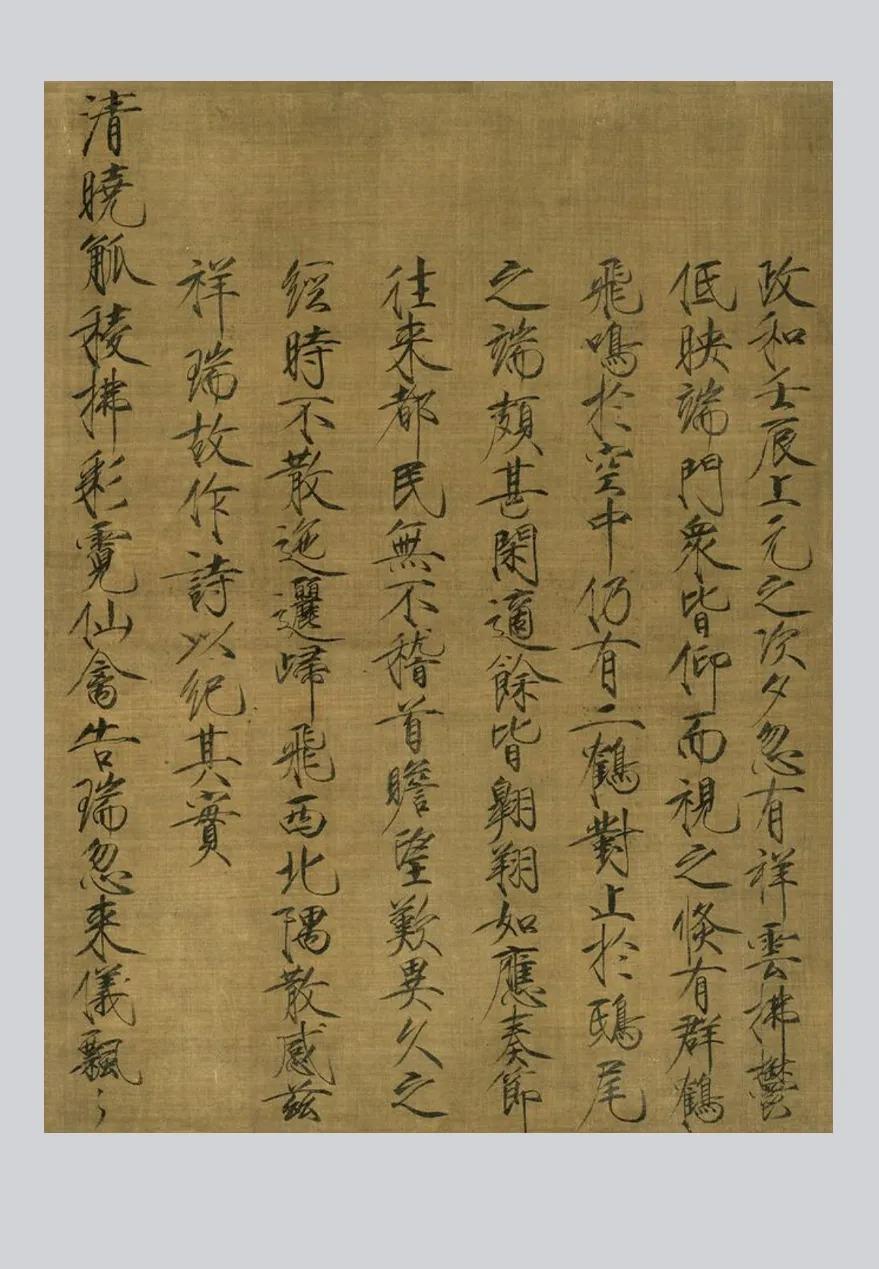 政和壬辰上元之次夕忽有祥雲拂鬱
低映端門衆皆仰而視之倏有群鶴
飛鳴於空中仍有二鶴對止於鴟尾
之端頗甚閑適餘皆翱翔如應奏節
往来都民無不稽首瞻望歎異久之
經時不散迤邐歸飛西北隅散感兹
祥瑞故作詩以紀其實
清曉觚稜拂彩霓仙禽告瑞忽来儀飄〻